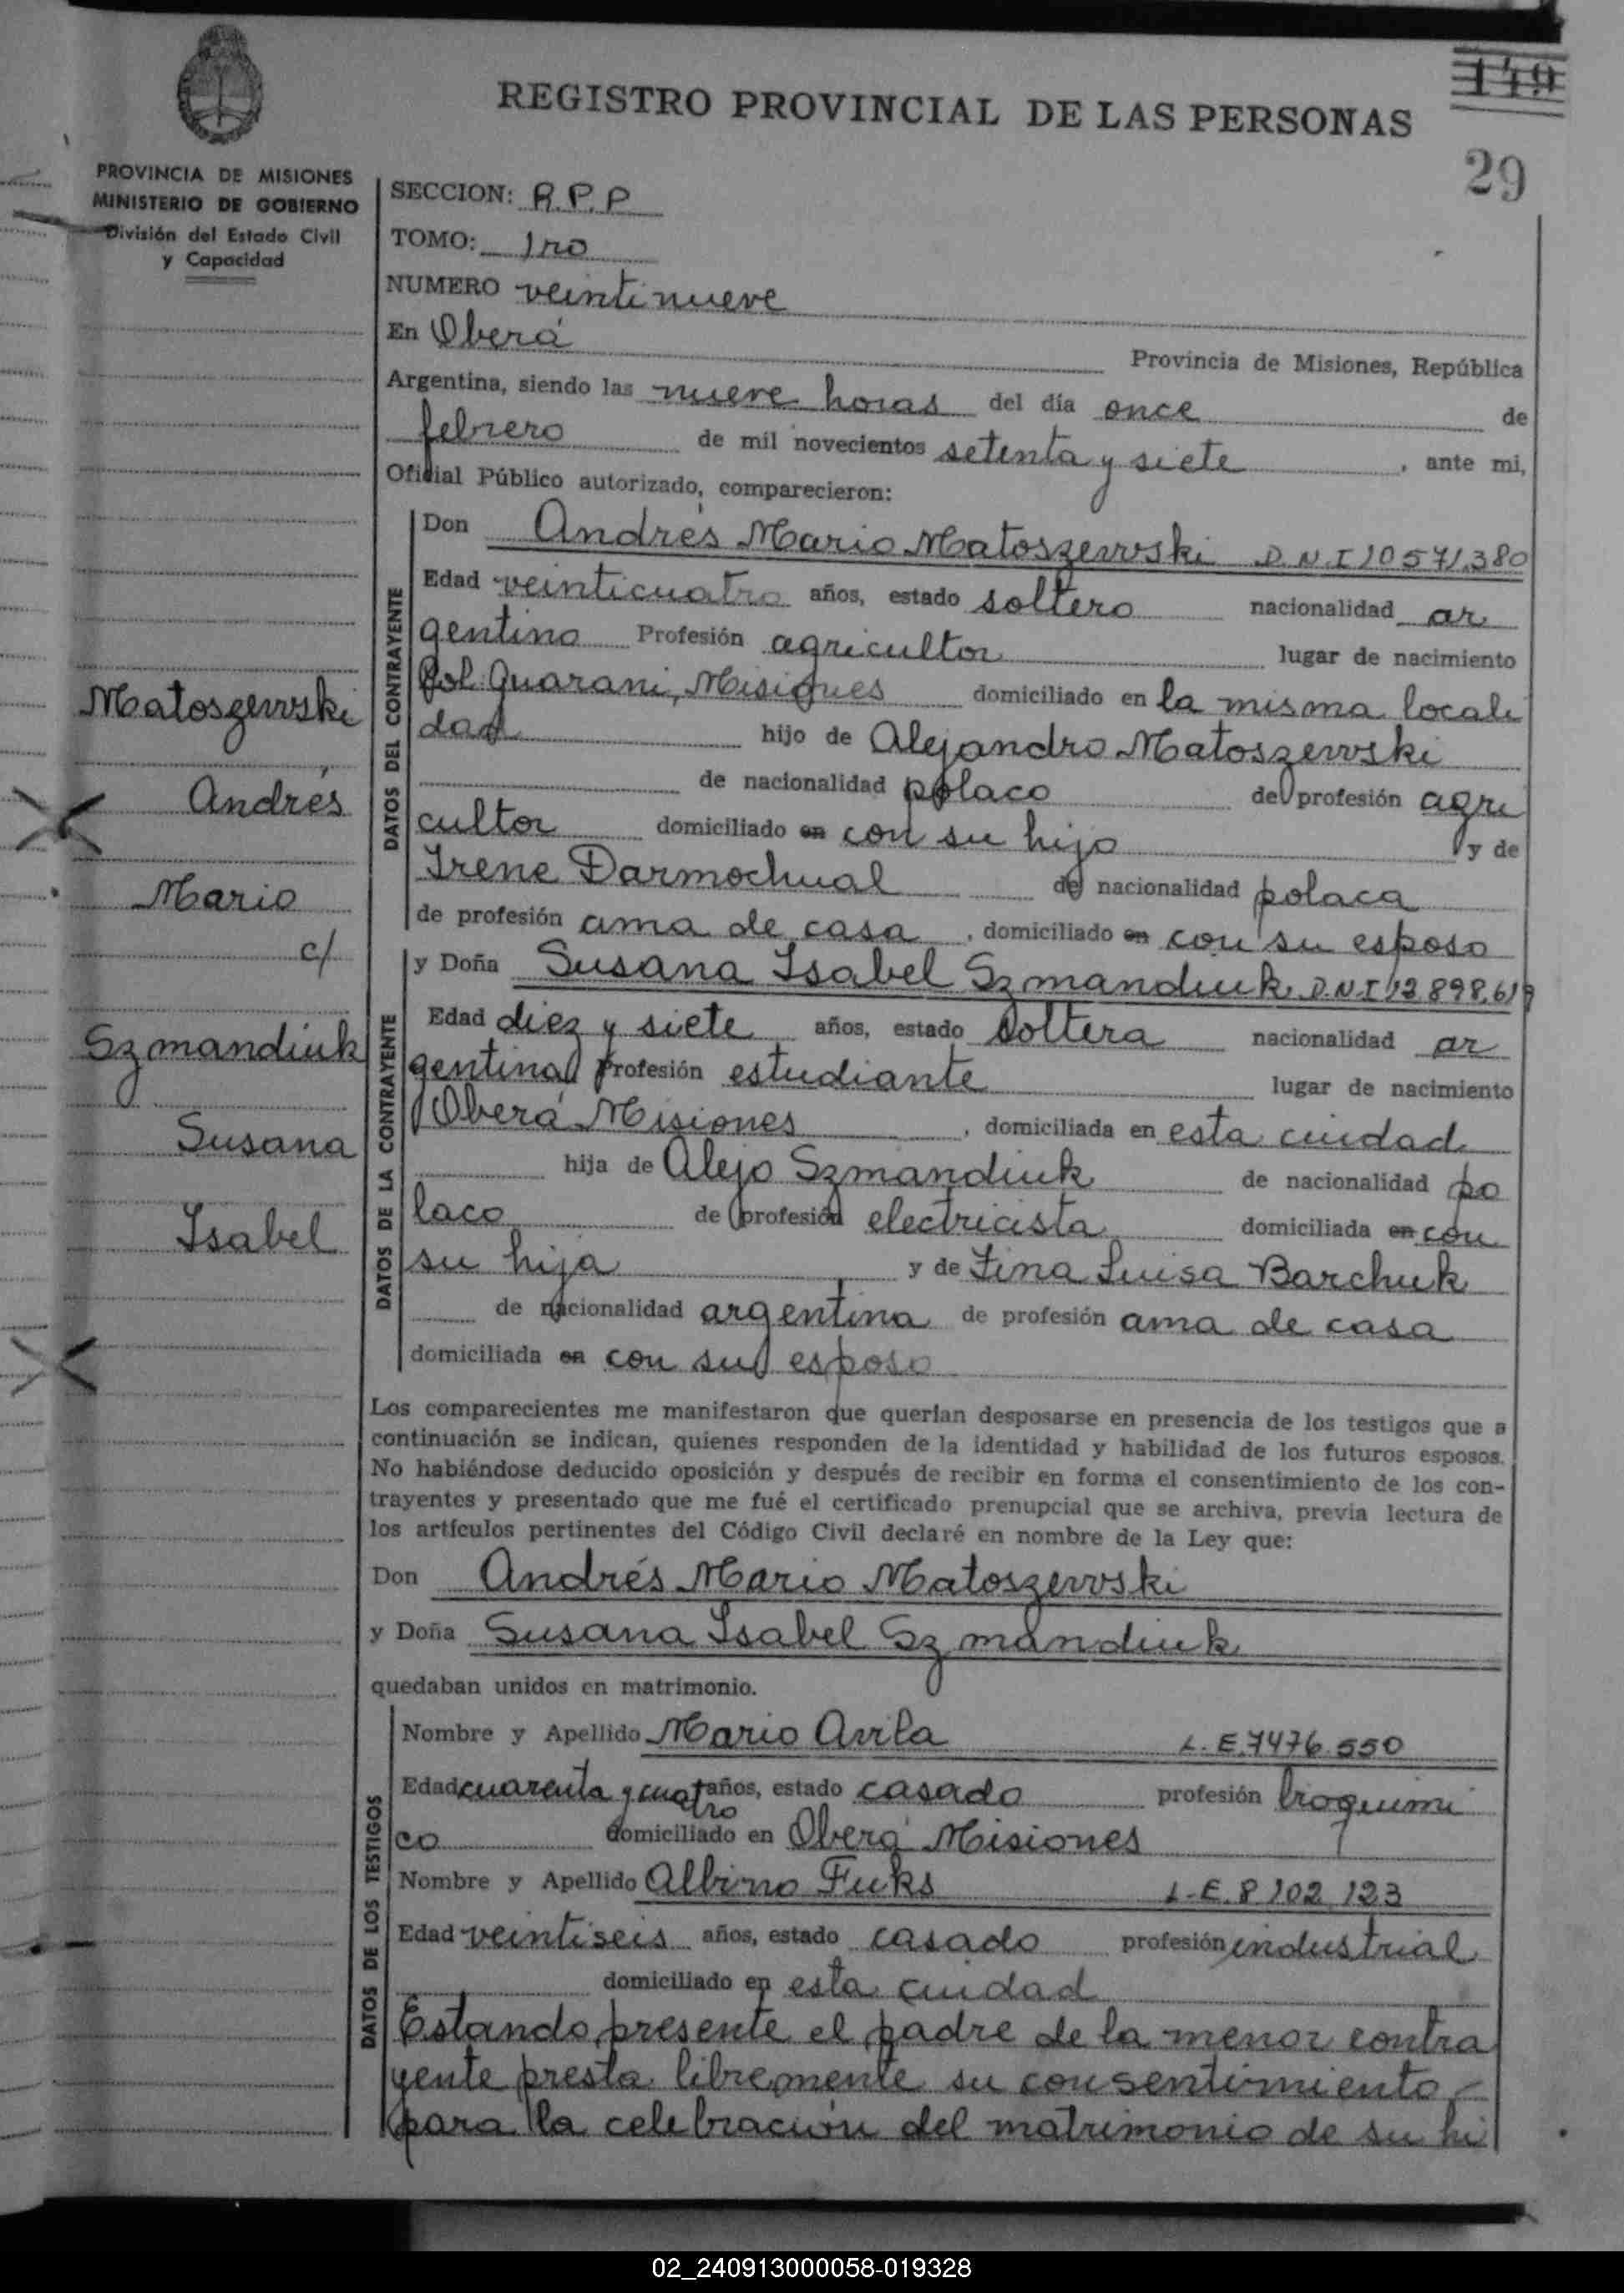 149
REGISTRO PROVINCIAL DE LAS PERSONAS
29
PROVINCIA DE MISIONES
MINISTERIO DE GOBIERNO
División del Estado Civil
y Capacidad
SECCION: R.P.P
TOMO: 1ro
NUMERO veintinueve
En Oberá Provincia de Misiones, República
Argentina, siendo las nueve horas del día once de
febrero de mil novecientos setenta y siete, ante mi,
Oficial Público autorizado, comparecieron:
Matoszewski
Andrés
Mario
c/
Szmandiuk
Susana
Isabel
DATOS DEL CONTRAYENTE
Don Andrés Mario Matoszewski D.N.I 10571.380
Edad veinticuatro años, estado soltero nacionalidad ar
gentino Profesión agricultor lugar de nacimiento
Col. Guaraní, Misiones domiciliado en la misma locali
dad hijo de Alejandro Matoszewski
de nacionalidad polaco de profesión agri
cultor domiciliado en con su hijo y de
Irene Darmochual de nacionalidad polaca
de profesión ama de casa, domiciliado en con su esposo
DATOS DE LA CONTRAYENTE
y Doña Susana Isabel Szmandiuk D.N.I 12.898.619
Edad diez y siete años, estado soltera nacionalidad ar
gentina Profesión estudiante lugar de nacimiento
Oberá Misiones, domiciliada en esta ciudad
hija de Alejo Szmandiuk de nacionalidad po
laco de profesión electricista domiciliada en con
su hija y de Fina Luisa Barchuk
de nacionalidad argentina de profesión ama de casa
domiciliada en con su esposo
Los comparecientes me manifestaron que querían desposarse en presencia de los testigos que a
continuación se indican, quienes responden de la identidad y habilidad de los futuros esposos.
No habiéndose deducido oposición y después de recibir en forma el consentimiento de los con-
trayentes y presentado que me fué el certificado prenupcial que se archiva, previa lectura de
los artículos pertinentes del Código Civil declaré en nombre de la Ley que:
Don Andrés Mario Matoszewski
y Doña Susana Isabel Szmandiuk
quedaban unidos en matrimonio.
DATOS DE LOS TESTIGOS
Nombre y Apellido Mario Avila L.E. 7476.550
Edad cuarenta y cuatro años, estado casado profesión bioquími
co domiciliado en Oberá Misiones
Nombre y Apellido Albino Fuks L.E. 8.102.123
Edad veintiseis años, estado casado profesión industrial
domiciliado en esta ciudad
Estando presente el padre de la menor contra
yente presta libremente su consentimiento -
para la celebración del matrimonio de su hi
02_240913000058-019328